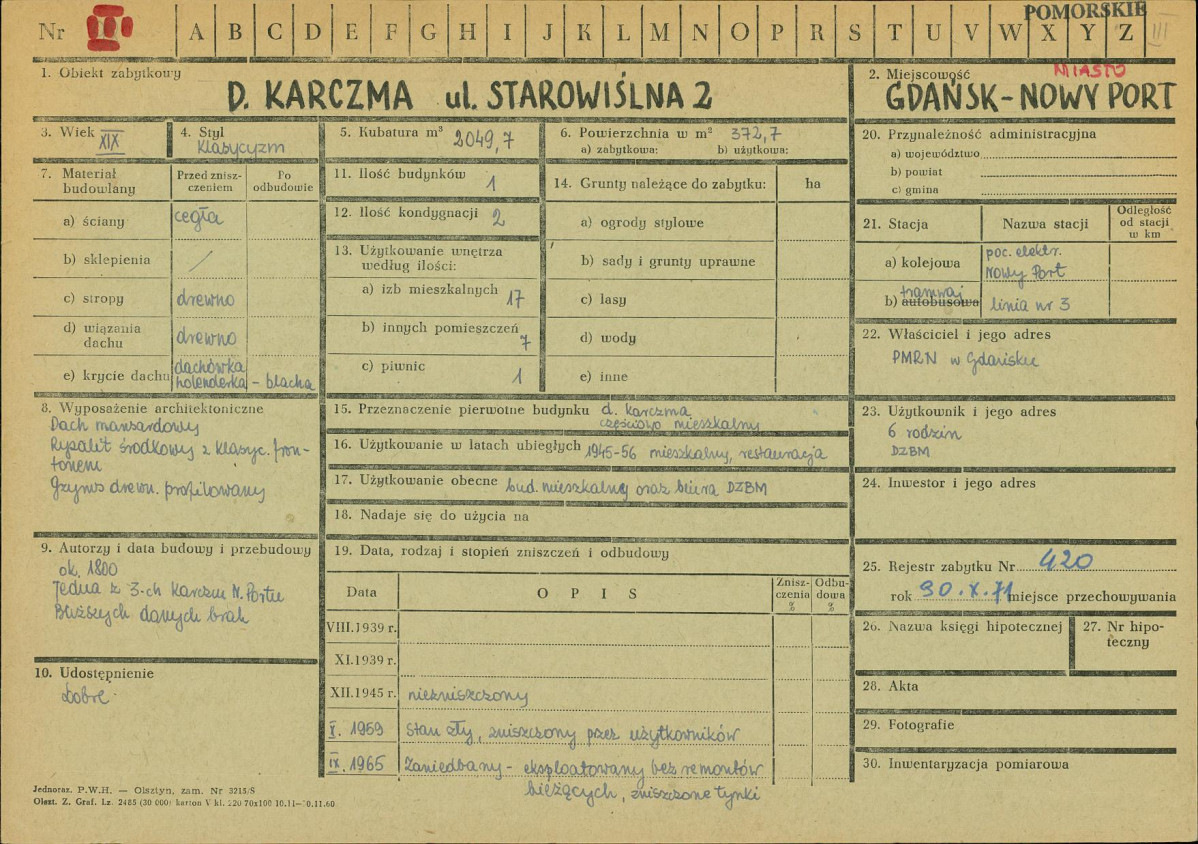 Nr II A B C D E F G H I J K L M N O P R S T U V W X Y Z III
POMORSKIE
1. Obiekt zabytkowy
D. KARCZMA ul. STAROWIŚLNA 2
2. Miejscowość
MIASTO
GDAŃSK - NOWY PORT
3. Wiek XIX
4. Styl
Klasycyzm
5. Kubatura m³ 2049,7
6. Powierzchnia w m² 372,7
a) zabytkowa: b) użytkowa:
7. Materiał budowlany
Przed zniszczeniem
Po odbudowie
a) ściany cegła
b) sklepienia /
c) stropy drewno
d) wiązania dachu drewno
e) krycie dachu dachówka holenderka - blacha
8. Wyposażenie architektoniczne
Dach mansardowy
Ryzalit środkowy z klasyc. fron-
tonem
Gzyms drewn. profilowany
9. Autorzy i data budowy i przebudowy
ok. 1800
Jedna z 3-ch Karczm N. Portu
Bliższych danych brak
10. Udostępnienie
Dobre
11. Ilość budynków 1
12. Ilość kondygnacji 2
13. Użytkowanie wnętrza
według ilości:
a) izb mieszkalnych 17
b) innych pomieszczeń 7
c) piwnic 1
14. Grunty należące do zabytku: ha
a) ogrody stylowe
b) sady i grunty uprawne
c) lasy
d) wody
e) inne
15. Przeznaczenie pierwotne budynku d. karczma
częściowo mieszkalny
16. Użytkowanie w latach ubiegłych 1945-56 mieszkalny, restauracja
17. Użytkowanie obecne bud. mieszkalny oraz biura DZBM
18. Nadaje się do użycia na
19. Data, rodzaj i stopień zniszczeń i odbudowy
Data OPIS Znisz-
czenia
% Odbu-
dowa
%
VIII.1939 r.
XI.1939 r.
XII.1945 r. niezniszczony
X. 1959 Stan zły, zniszczony przez użytkowników
IX. 1965 Zaniedbany - eksploatowany bez remontów
bieżących, zniszczone tynki
20. Przynależność administracyjna
a) województwo
b) powiat
c) gmina
21. Stacja
Nazwa stacji
Odległość
od stacji
w km
a) kolejowa poc. elektr.
Nowy Port
tramwaj
b) autobusowa linia nr 3
22. Właściciel i jego adres
PMRN w Gdańsku
23. Użytkownik i jego adres
6 rodzin
DZBM
24. Inwestor i jego adres
25. Rejestr zabytku Nr 420
rok 30.X.71 miejsce przechowywania
26. Nazwa księgi hipotecznej
27. Nr hipo-
teczny
28. Akta
29. Fotografie
30. Inwentaryzacja pomiarowa
Jednoraz. P.W.H. — Olsztyn, zam. Nr 3215/S
Olszt. Z. Graf. Lz. 2485 (30 000) karton V kl. 220 70x100 10.11—10.11.60